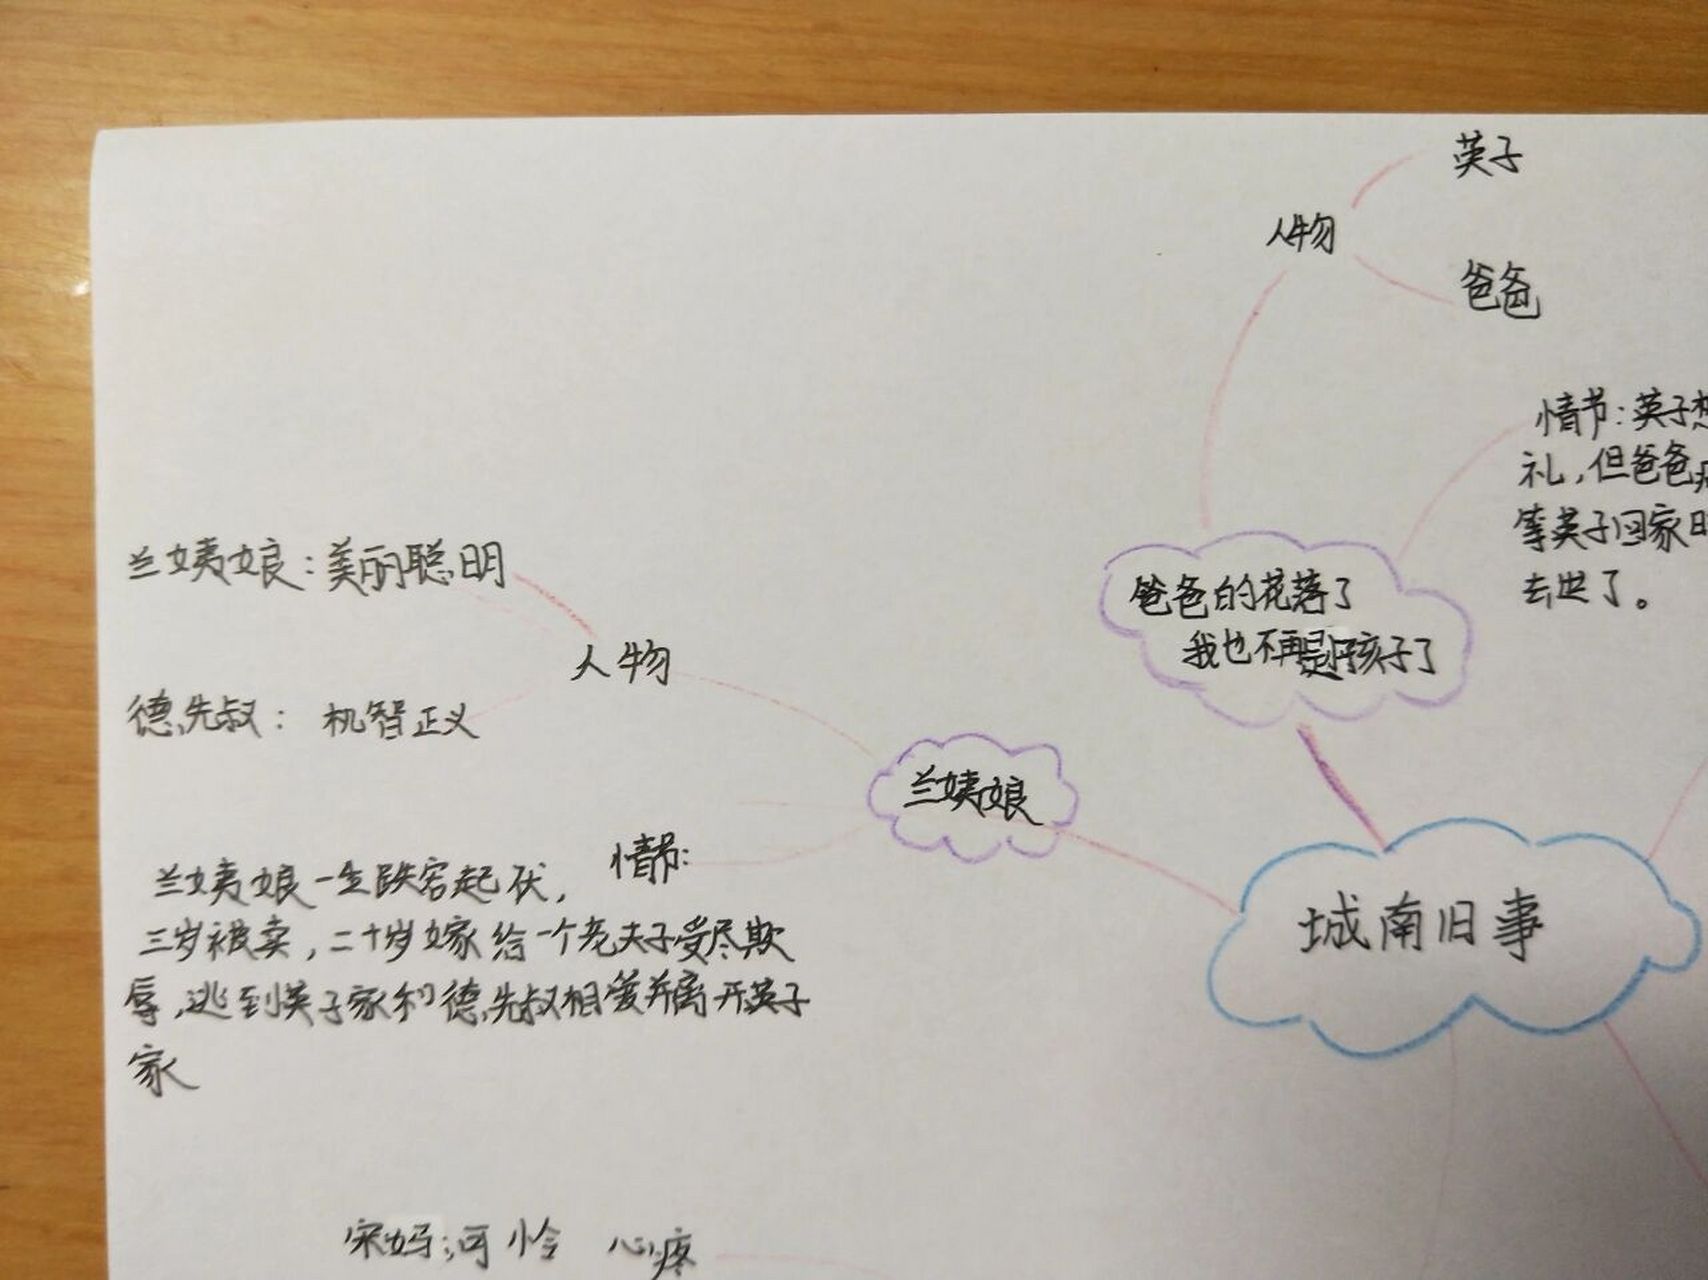 英子
人物
爸爸
情节：英子想
礼，但爸爸病
等英子回家时
去世了。
爸爸的花落了
我也不再是小孩子了
兰姨娘：美丽聪明
人物
德先叔： 机智正义
兰姨娘
情节：
兰姨娘一生跌宕起伏，
三岁被卖，二十岁嫁给一个老夫子受尽欺
辱，逃到英子家和德先叔相爱并离开英子
家
城南旧事
宋妈：可怜 心疼